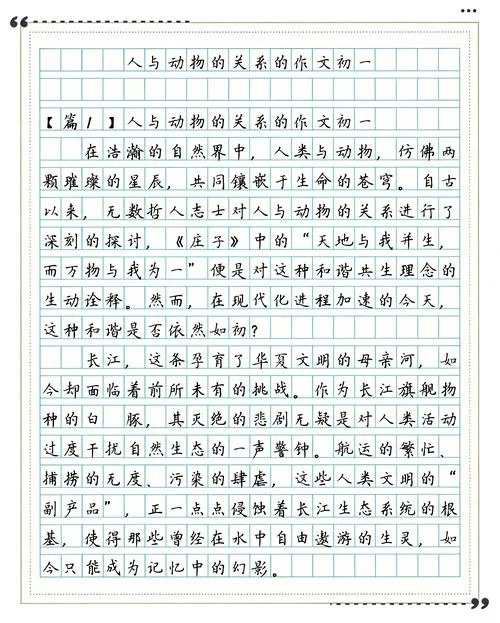 人与动物的关系的作文初一
【篇1】人与动物的关系的作文初一
在浩瀚的自然界中，人类与动物，仿佛两
颗璀璨的星辰，共同镶嵌于生命的苍穹。自古
以来，无数哲人志士对人与动物的关系进行了
深刻的探讨，《庄子》中的“天地与我并生，
而万物与我为一”便是对这种和谐共生理念的
生动诠释。然而，在现代化进程加速的今天，
这种和谐是否依然如初？
长江，这条孕育了华夏文明的母亲河，如
今却面临着前所未有的挑战。作为长江旗舰物
种的白 豚，其灭绝的悲剧无疑是对人类活动
过度干扰自然生态的一声警钟。航运的繁忙、
捕捞的无度、污染的肆虐，这些人类文明的“
副产品”，正一点点侵蚀着长江生态系统的根
基，使得那些曾经在水中自由遨游的生灵，如
今只能成为记忆中的幻影。